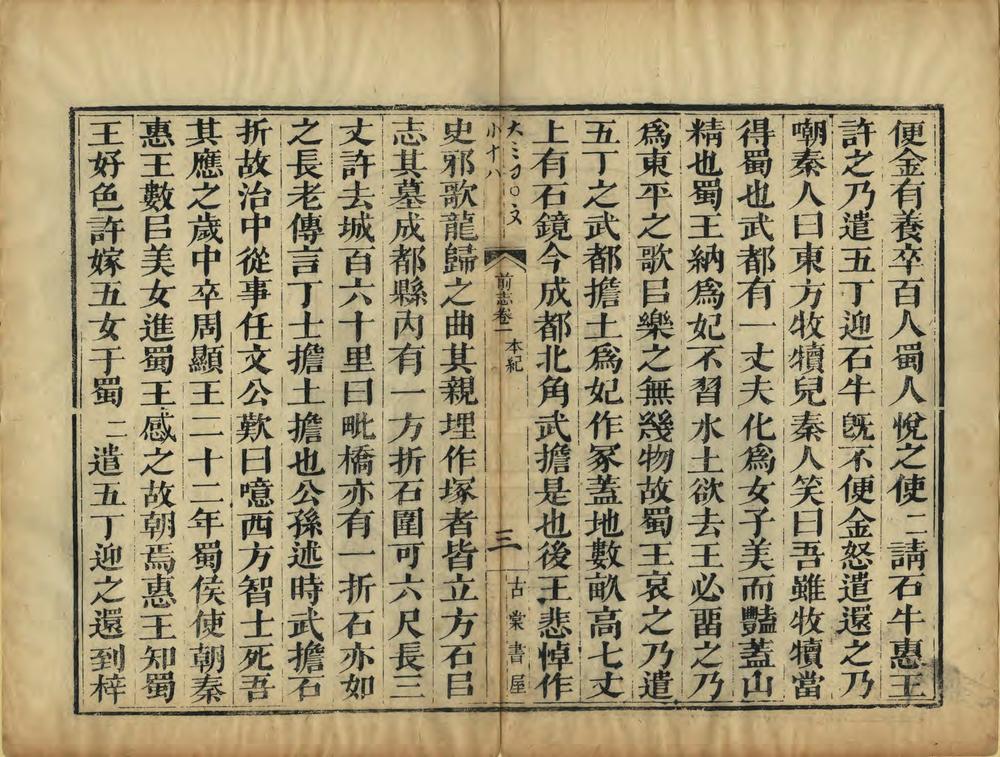 便金有養卒百人蜀人悅之使二請石牛惠王
許之乃遣五丁迎石牛旣不便金怒遣還之乃
嘲秦人曰東方牧犢兒秦人笑曰吾雖牧犢當
得蜀也武都有一丈夫化爲女子美而豔蓋山
精也蜀王納爲妃不習水土欲去王必畱之乃
爲東平之歌㠯樂之無幾物故蜀王哀之乃遣
五丁之武都擔土爲妃作冢蓋地數畝高七丈
上有石鏡今成都北角武擔是也後王悲悼作
大三
小十八
前志卷一 本紀
三
古棠書屋
史邪歌龍歸之曲其親埋作塚者皆立方石㠯
志其墓成都縣內有一方折石圍可六尺長三
丈許去城百六十里曰毗橋亦有一折石亦如
之長老傳言丁士擔土擔也公孫述時武擔石
折故治中從事任文公歎曰噫西方智士死吾
其應之歲中卒周顯王二十二年蜀侯使朝秦
惠王數㠯美女進蜀王感之故朝焉惠王知蜀
王好色許嫁五女于蜀二遣五丁迎之還到梓